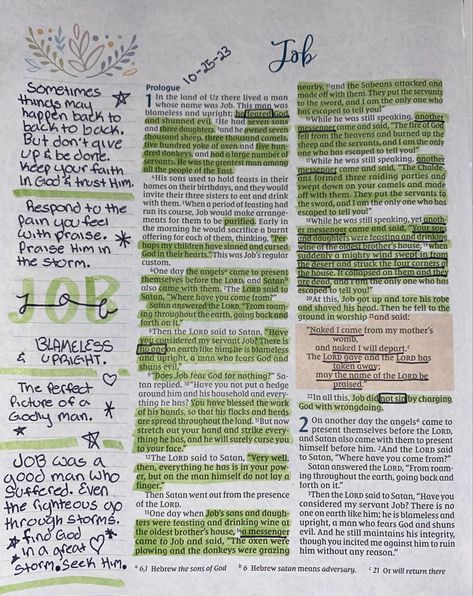 10-25-23
Job
Sometimes
things may
happen back to
back to back.
But don't give
up & be done.
Keep your faith
in God & trust Him.
Respond to the
pain you feel
with praise.
Praise Him in
the storm.
JOB
Job
BLAMELESS
& UPRIGHT.
The Perfect
Picture of a
Godly man.
JOB was a
good man who
suffered. Even
the righteous go
through storms.
find God
in a great
storm. Seek Him.
Prologue
1 In the land of Uz there lived a man
whose name was Job. This man was
blameless and upright; he feared God
and shunned evil. 2He had seven sons
and three daughters, 3and he owned seven
thousand sheep, three thousand camels,
five hundred yoke of oxen and five hun-
dred donkeys, and had a large number of
servants. He was the greatest man among
all the people of the East.
4His sons used to hold feasts in their
homes on their birthdays, and they would
invite their three sisters to eat and drink
with them. 5When a period of feasting had
run its course, Job would make arrange-
ments for them to be purified. Early in
the morning he would sacrifice a burnt
offering for each of them, thinking, "Per-
haps my children have sinned and cursed
God in their hearts." This was Job's regular
custom.
6One day the angels a came to present
themselves before the LORD, and Satan b
also came with them. 7The LORD said to
Satan, "Where have you come from?"
Satan answered the LORD, "From roaming
throughout the earth, going back and
forth on it."
8Then the LORD said to Satan, "Have
you considered my servant Job? There is
no one on earth like him; he is blameless
and upright, a man who fears God and
shuns evil."
9"Does Job fear God for nothing?" Sa-
tan replied. 10"Have you not put a hedge
around him and his household and every-
thing he has? You have blessed the work
of his hands, so that his flocks and herds
are spread throughout the land. 11But now
stretch out your hand and strike every-
thing he has, and he will surely curse you
to your face."
12The LORD said to Satan, "Very well,
then, everything he has is in your pow-
er, but on the man himself do not lay a
finger."
Then Satan went out from the presence
of the LORD.
13One day when Job's sons and daugh-
ters were feasting and drinking wine at
the oldest brother's house, 14a messenger
came to Job and said, "The oxen were
plowing and the donkeys were grazing
nearby, 15and the Sabeans attacked and
made off with them. They put the servants
to the sword, and I am the only one who
has escaped to tell you!"
16While he was still speaking, another
messenger came and said, "The fire of God
fell from the heavens and burned up the
sheep and the servants, and I am the only
one who has escaped to tell you!"
17While he was still speaking, another
messenger came and said, "The Chalde-
ans formed three raiding parties and
swept down on your camels and made
off with them. They put the servants to
the sword, and I am the only one who has
escaped to tell you!"
18While he was still speaking, yet anoth-
er messenger came and said, "Your sons
and daughters were feasting and drinking
wine at the oldest brother's house, 19when
suddenly a mighty wind swept in from
the desert and struck the four corners of
the house. It collapsed on them and they
are dead, and I am the only one who has
escaped to tell you!"
20At this, Job got up and tore his robe
and shaved his head. Then he fell to the
ground in worship 21and said:
"Naked I came from my mother's
womb,
and naked I will depart. c
The LORD gave and the LORD has
taken away;
may the name of the LORD be
praised."
22In all this, Job did not sin by charging
God with wrongdoing.
2 On another day the angels a came to
present themselves before the LORD,
and Satan also came with them to present
himself before him. 2And the LORD said
to Satan, "Where have you come from?"
Satan answered the LORD, "From roam-
ing throughout the earth, going back and
forth on it."
3Then the LORD said to Satan, "Have you
considered my servant Job? There is no
one on earth like him; he is blameless and
upright, a man who fears God and shuns
evil. And he still maintains his integrity,
though you incited me against him to ruin
him without any reason."
a 6,1 Hebrew the sons of God b 6 Hebrew satan means adversary. c 21 Or will return there